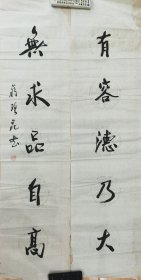 有容德乃大
無求品自高